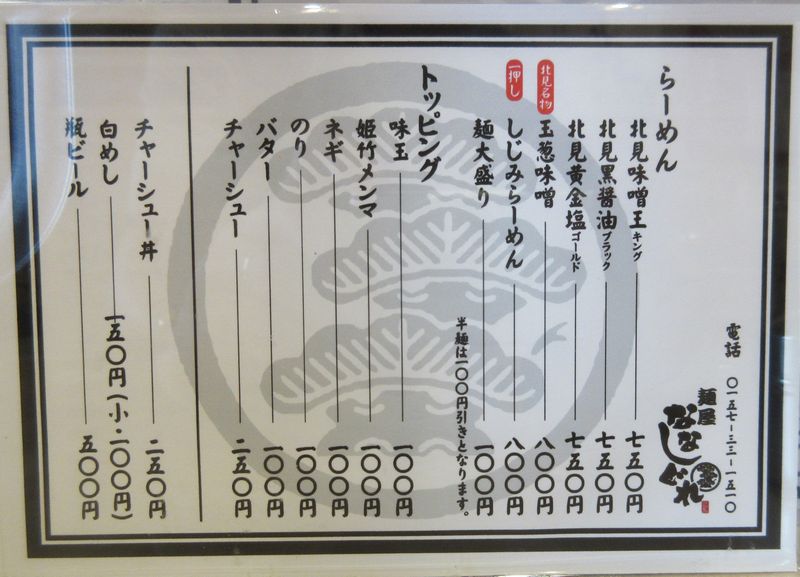 電話 〇一五七-三三-一五一〇
麺屋 ななしぐれ
らーめん
北見味噌王キング 七五〇円
北見黒醤油ブラック 七五〇円
北見黄金塩ゴールド 七五〇円
北見名物 玉葱味噌 八〇〇円
一押し しじみらーめん 八〇〇円
麺大盛り 一〇〇円
半麺は一〇〇円引きとなります。
トッピング
味玉 一〇〇円
姫竹メンマ 一〇〇円
ネギ 一〇〇円
のり 一〇〇円
バター 一〇〇円
チャーシュー 二五〇円
チャーシュー丼 二五〇円
白めし 一五〇円(小・一〇〇円)
瓶ビール 五〇〇円